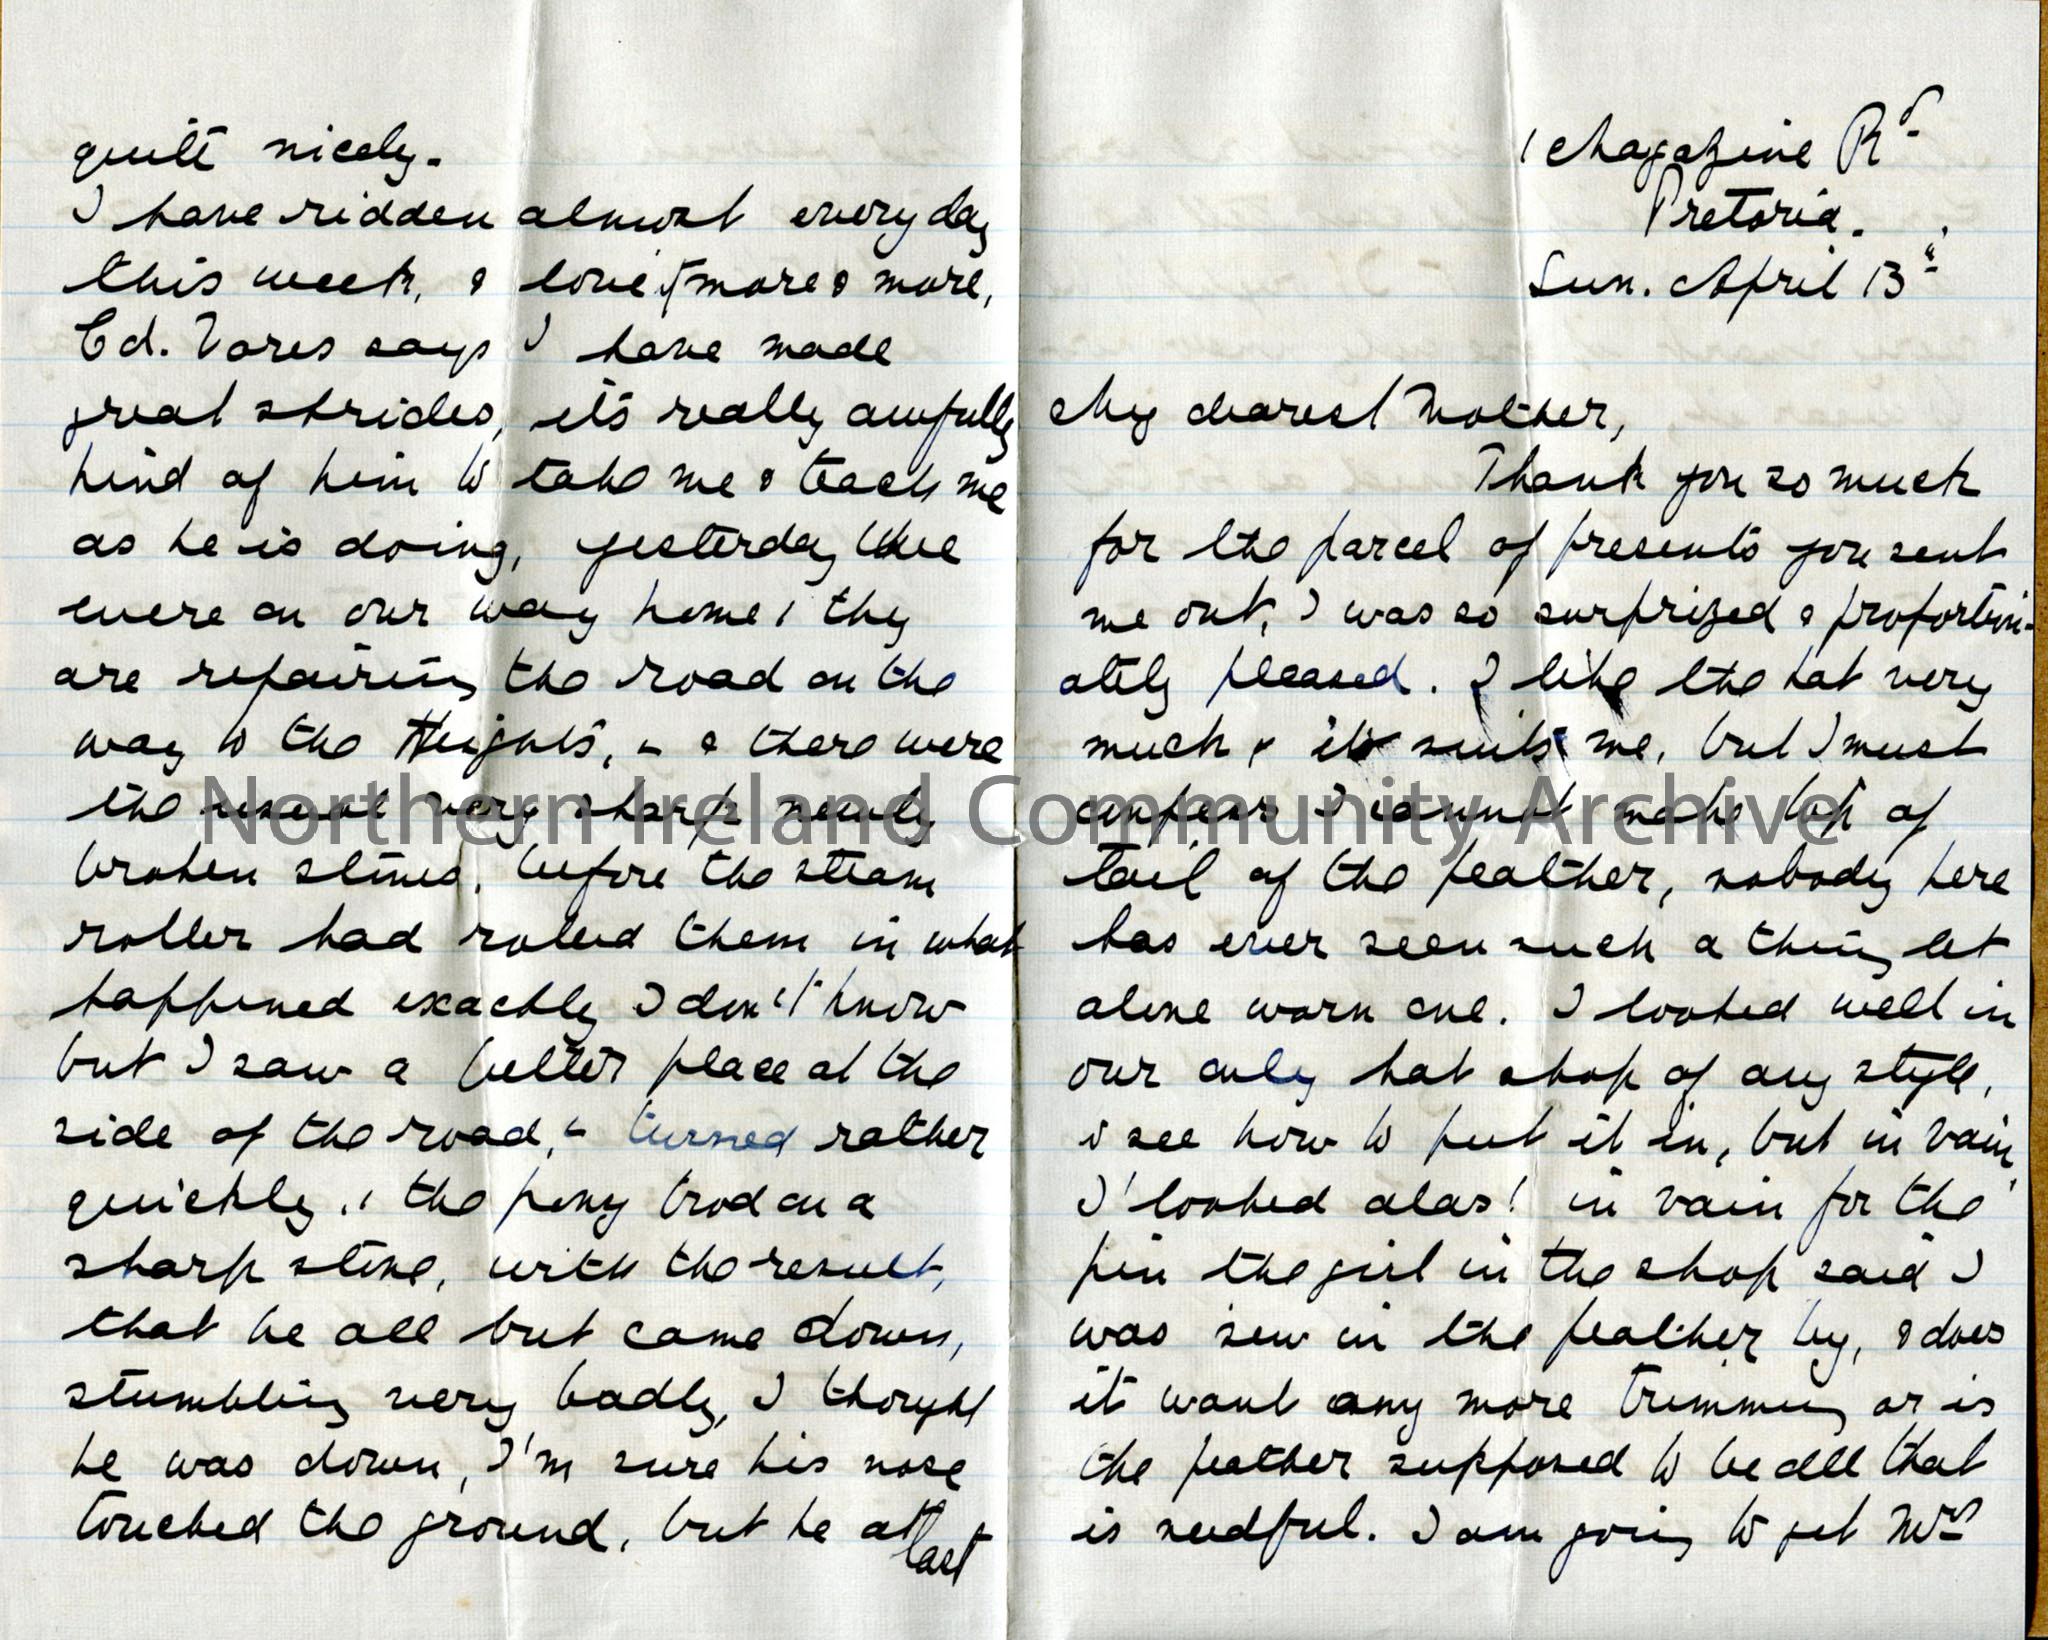 1 Magazine Rd
Pretoria.
Sun. April 13th
My dearest Mother,
Thank you so much
for the parcel of presents you sent
me out, I was so surprized & proportion-
ately pleased. I like the hat very
much & it suits me, but I must
confess I cannot make top of
tail of the feather, nobody here
has ever seen such a thing let
alone worn one. I looked well in
our only hat shop of any style,
to see how to put it in, but in vain,
I looked alas! in vain for the
pin the girl in the shop said I
was sew in the feather by, & does
it want any more trimming or is
the feather supposed to be all that
is needful. I am going to get Mrs
quite nicely.
I have ridden almost every day
this week, & love it more & more,
Ed. Vores says I have made
great strides, it's really awfully
kind of him to take me & teach me
as he is doing, yesterday we
were on our way home, they
are repairing the road on the
way to the Heights, - & there were
the usual very sharp newly
broken stones, before the steam
roller had rolled them in what
happened exactly I don't know
but I saw a better place at the
side of the road, - turned rather
quickly, & the pony trod on a
sharp stone, with the result,
that he all but came down,
stumbling very badly, I thought
he was down, I'm sure his nose
touched the ground, but he at
last
Northern Ireland Community Archive